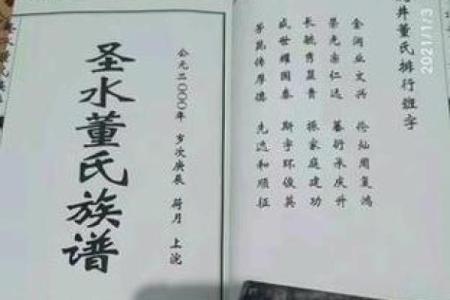 井董氏排行班字
金润业文兴 伦灿周复鸿
荣光宗仁达 蕃衍庆升
长毓秀显贵 振家庭建功
盛世耀国泰 斯宇环俊英
传厚德 先选和顺征
公元二〇〇〇年 岁次庚辰 荷月 上浣
圣水董氏族谱
2021/1/3